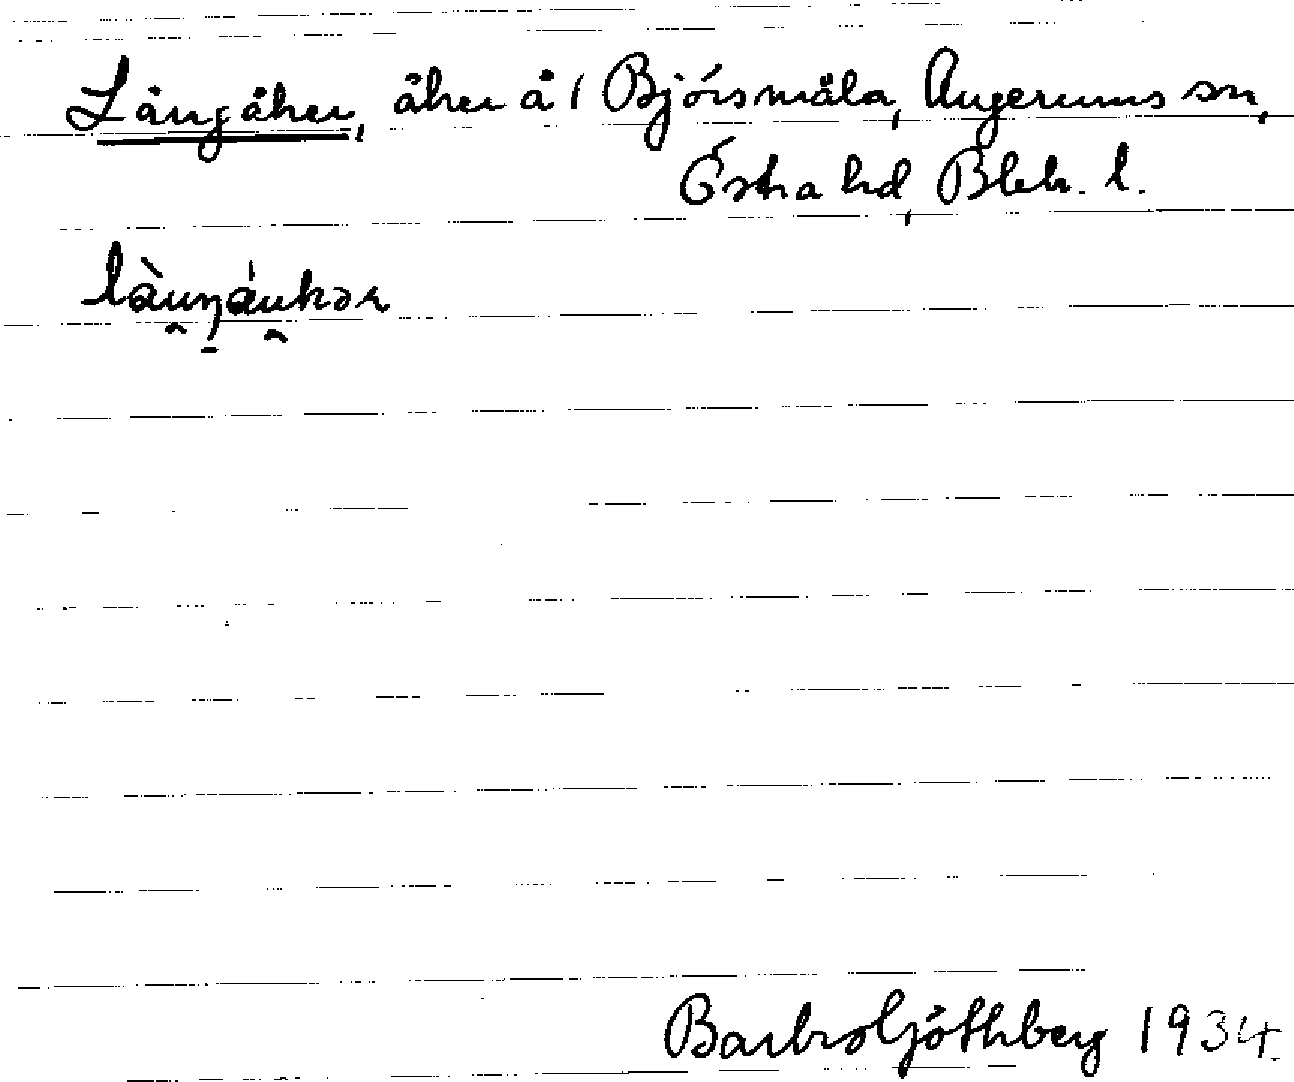 Långåker, åker å 1 Björsmåla, Augerums sn,
Östra hd, Blek. l.
làuŋáukər
Barbro Göthberg 1934.